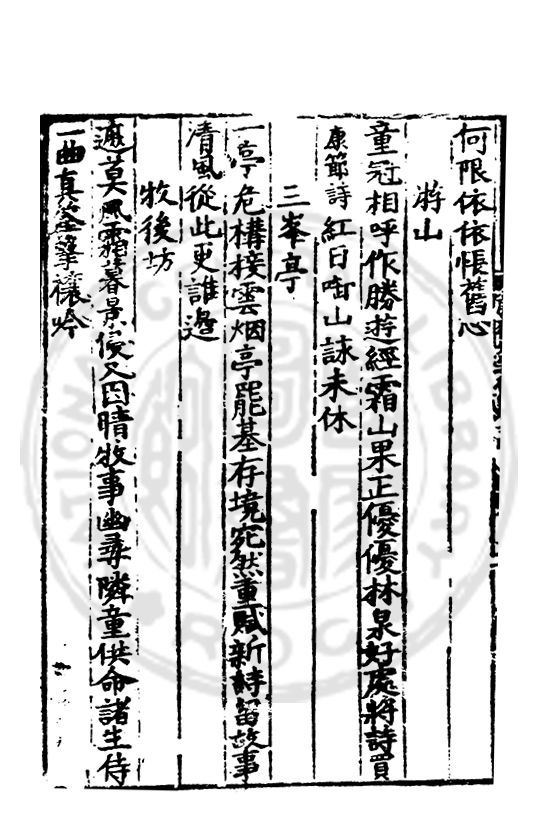 何限依依悵舊心
遊山
童冠相呼作勝遊經霜山果正優優林泉好處將詩買
康節詩紅日啣山詠未休
三峯亭
一亭危構接雲烟亭罷基存境宛然重賦新詩留故事
清風從此更誰邊
牧後坊
遮莫風霜暮景侵又因晴牧事幽尋隣童供命諸生侍
一曲真荃擊襄吟